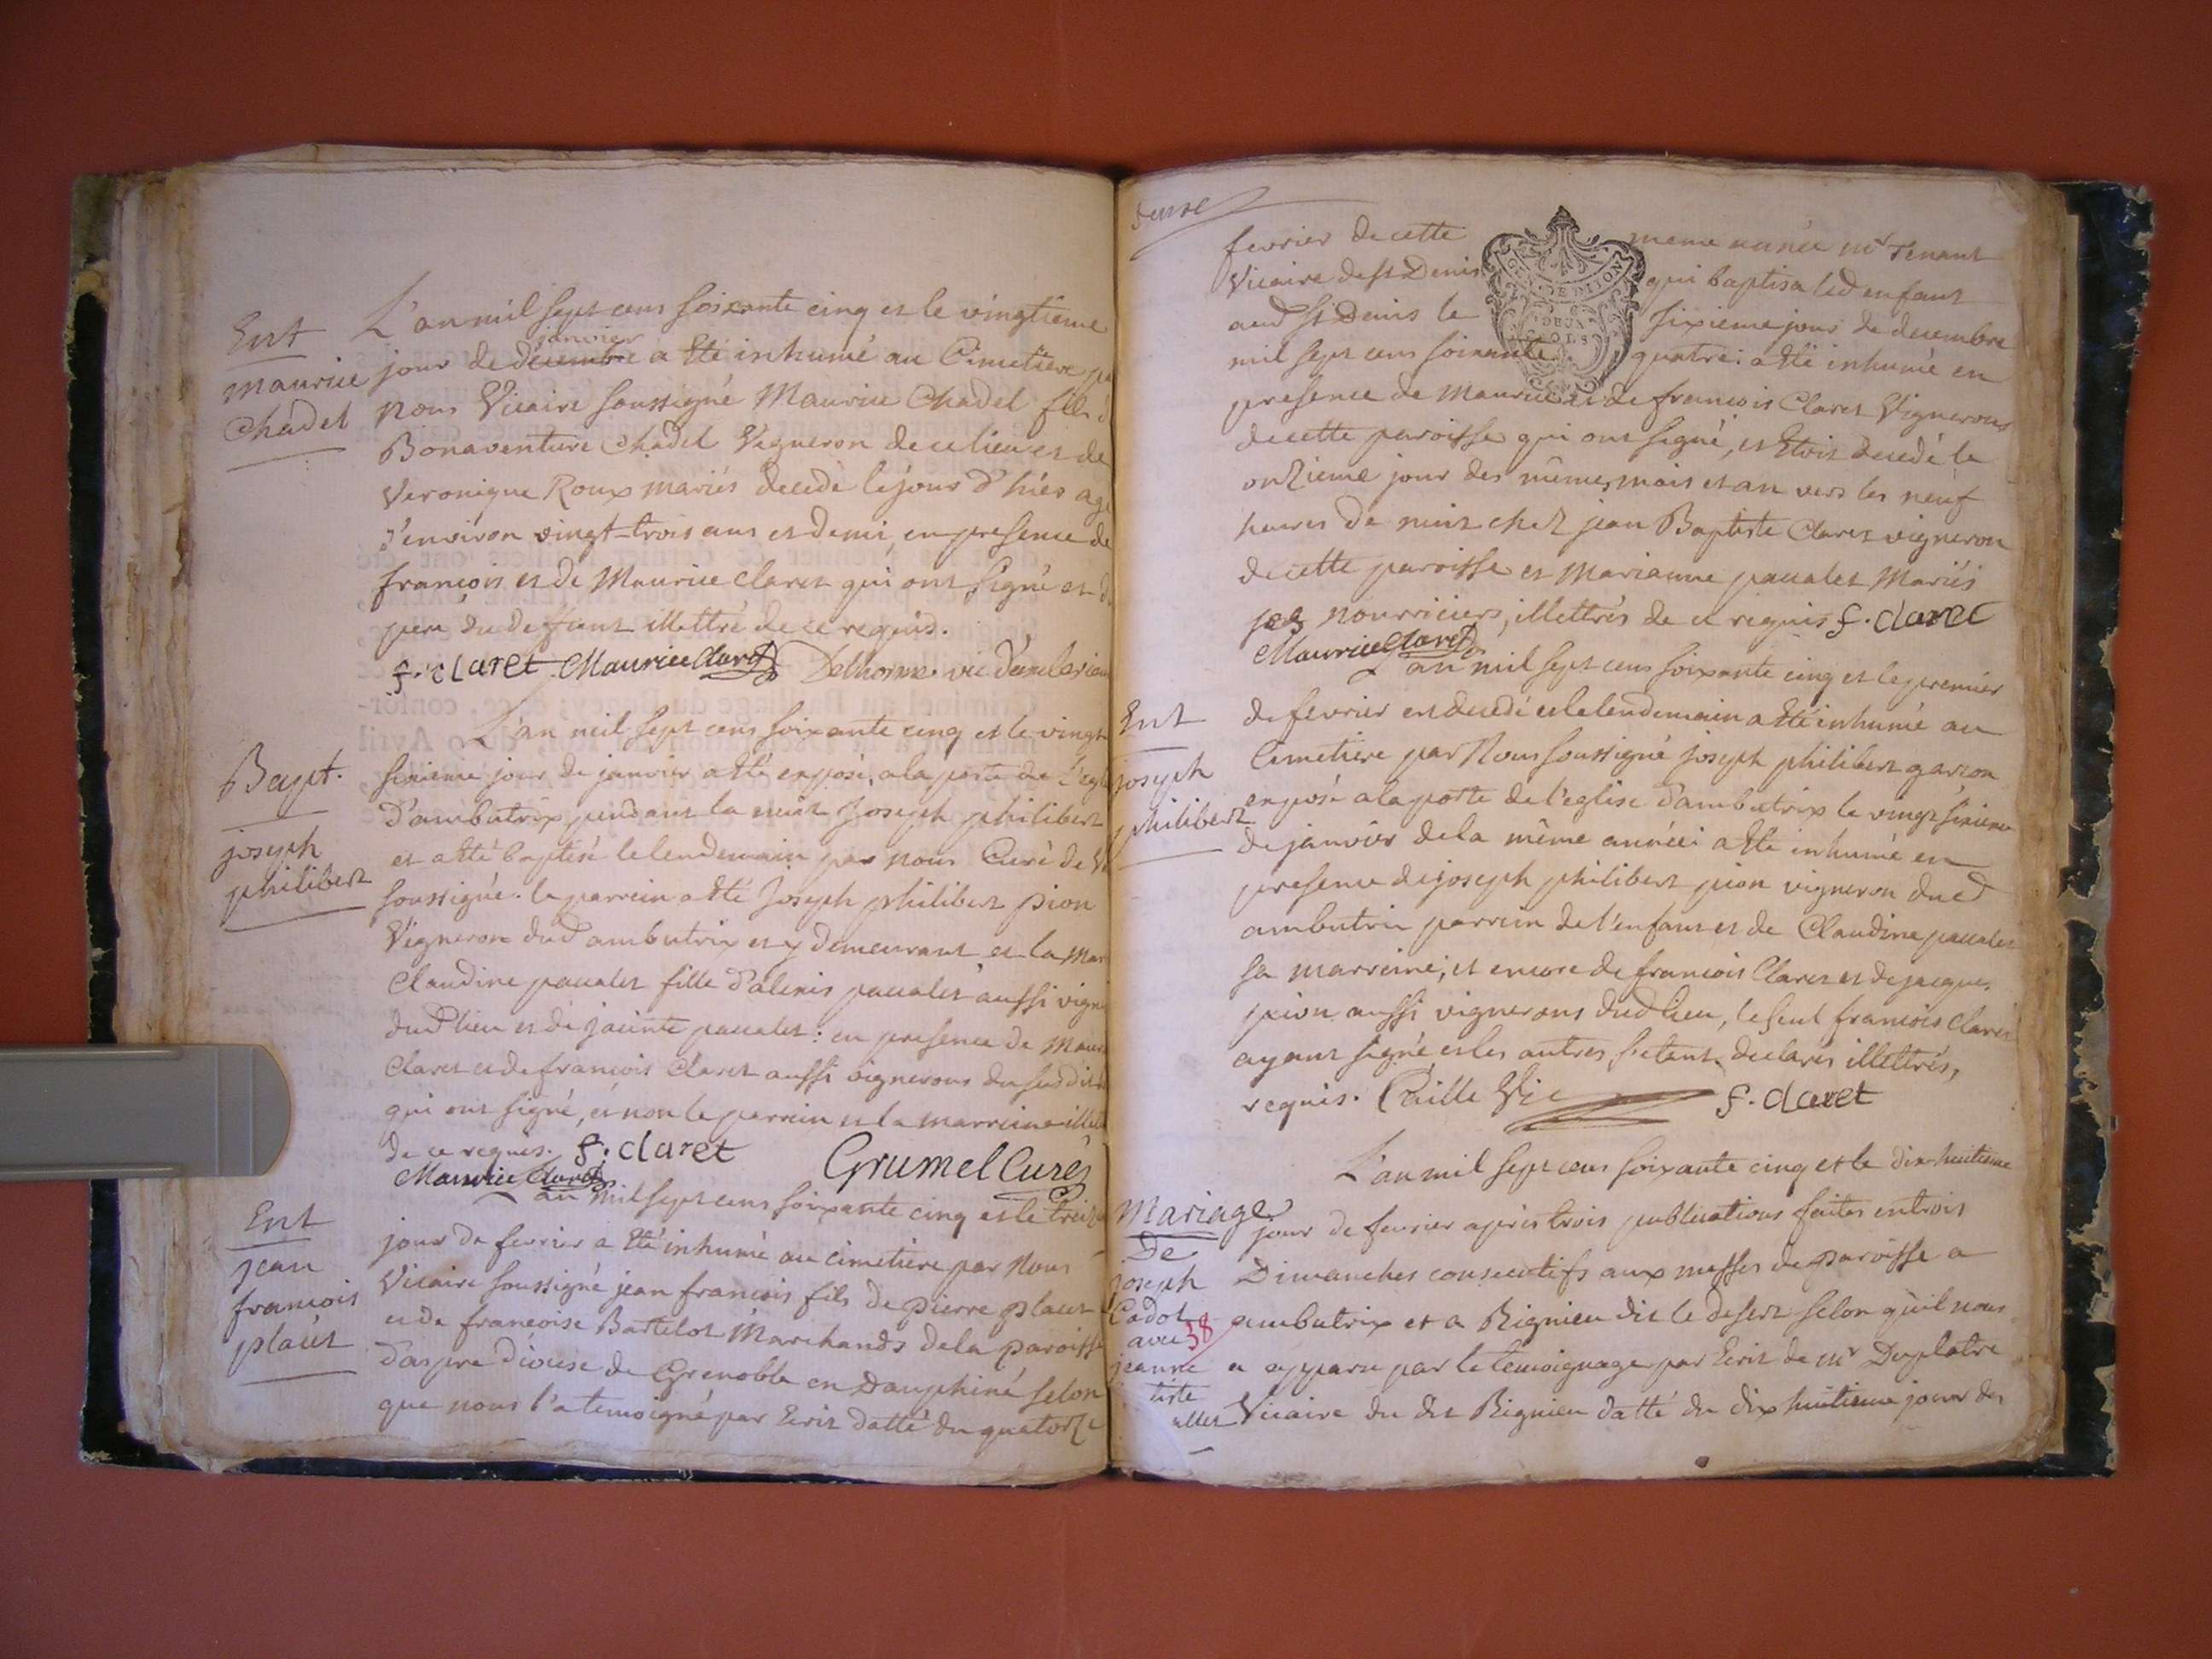 Ent
maurice
Chadel
L'an mil sept cens soixante cinq et le vingtieme
janvier
jour de decembre a Eté inhumé au Cimetiere
nous Vicaire soussigné Maurice Chadel fils
Bonaventure Chadel Vigneron de ce lieu et de
Veronique Roux mariés decedé le jour d'hier agé
d'environ vingt-trois ans et demi, en presence de
françois et de Maurice Claret qui ont signé et
pere du deffunt illettré de ce requis.
f. claret Maurice Claret Delhorme vic
Bapt.
joseph
philibert
L'an mil sept cens soixante cinq et le vingt
sixieme jour de janvier a Eté exposé, a la porte de l'egl
d'ambutrix pendant la nuit Joseph philibert
et a Eté baptisé le lendemain par nous Curé de
soussigné. le parrein a Eté Joseph philibert pion
Vigneron dud ambutrix et y demeurant et la mar
Claudine paccalet fille d'alexis paccalet aussi vign
dud lieu et de jacinte paccalet: en presence de Maur
Claret et de francois Claret aussi vignerons du susdit
qui ont signé, et non le parrein et la marreine
de ce requis. f. claret
Maurice Claret Grumel Curé
Ent
jean
francois
plaut
an mil sept cens soixante cinq et le treiz
jour de fevrier a Eté inhumé au cimetiere par Nous
Vicaire soussigné jean francois fils de pierre plaut
et de francoise Battelot Marchands de la paroisse
d'aspre diocese de Grenoble en Dauphiné selon
que nous l'a temoigné par Ecrit datté du quatorze
GEN. DE DIJON
DEUX
SOLS
fevrier de cette meme année mr Tenant
Vicaire de st Denis qui baptisa led enfant
aud st Denis le sixieme jour de decembre
mil sept cens soixante quatre: a Eté inhumé en
presence de Maurice et de francois Claret Vignerons
de cette paroisse qui ont signé, et Etoit decedé le
onzieme jour des mêmes mois et an vers les neuf
heures de nuit chez jean Baptiste Claret vigneron
de cette paroisse et Marianne paccalet Mariés
ses nourriciers, illettrés de ce requis f. claret
Maurice Claret
Ent
joseph
philibert
an mil sept cens soixante cinq et le premier
de fevrier est decedé et le lendemain a Eté inhumé au
Cimetiere par Nous soussigné joseph philibert garcon
exposé a la porte de l'eglise d'ambutrix le vingt sixieme
de janvier de la même année: a Eté inhumé en
presence de joseph philibert pion vigneron dud
ambutrix parrein de l'enfant et de Claudine paccalet
sa marreine, et encore de francois Claret et de jacques
pion aussi vignerons dud lieu, le seul francois Claret
ayant signé et les autres s'etant declarés illettrés,
requis. Caille Vic f. claret
Mariage
De
joseph
Cadot
avec 38
jeanne
L'an mil sept cens soixante cinq et le dix-huitieme
jour de fevrier après trois publications faites en trois
Dimanches consecutifs aux messes de paroisse a
ambutrix et a Rignieu dit le desert selon qu'il nous
a apparu par le temoignage par Ecrit de mr Duplatre
Vicaire du dit Rignieu datté du dix huitieme jour des